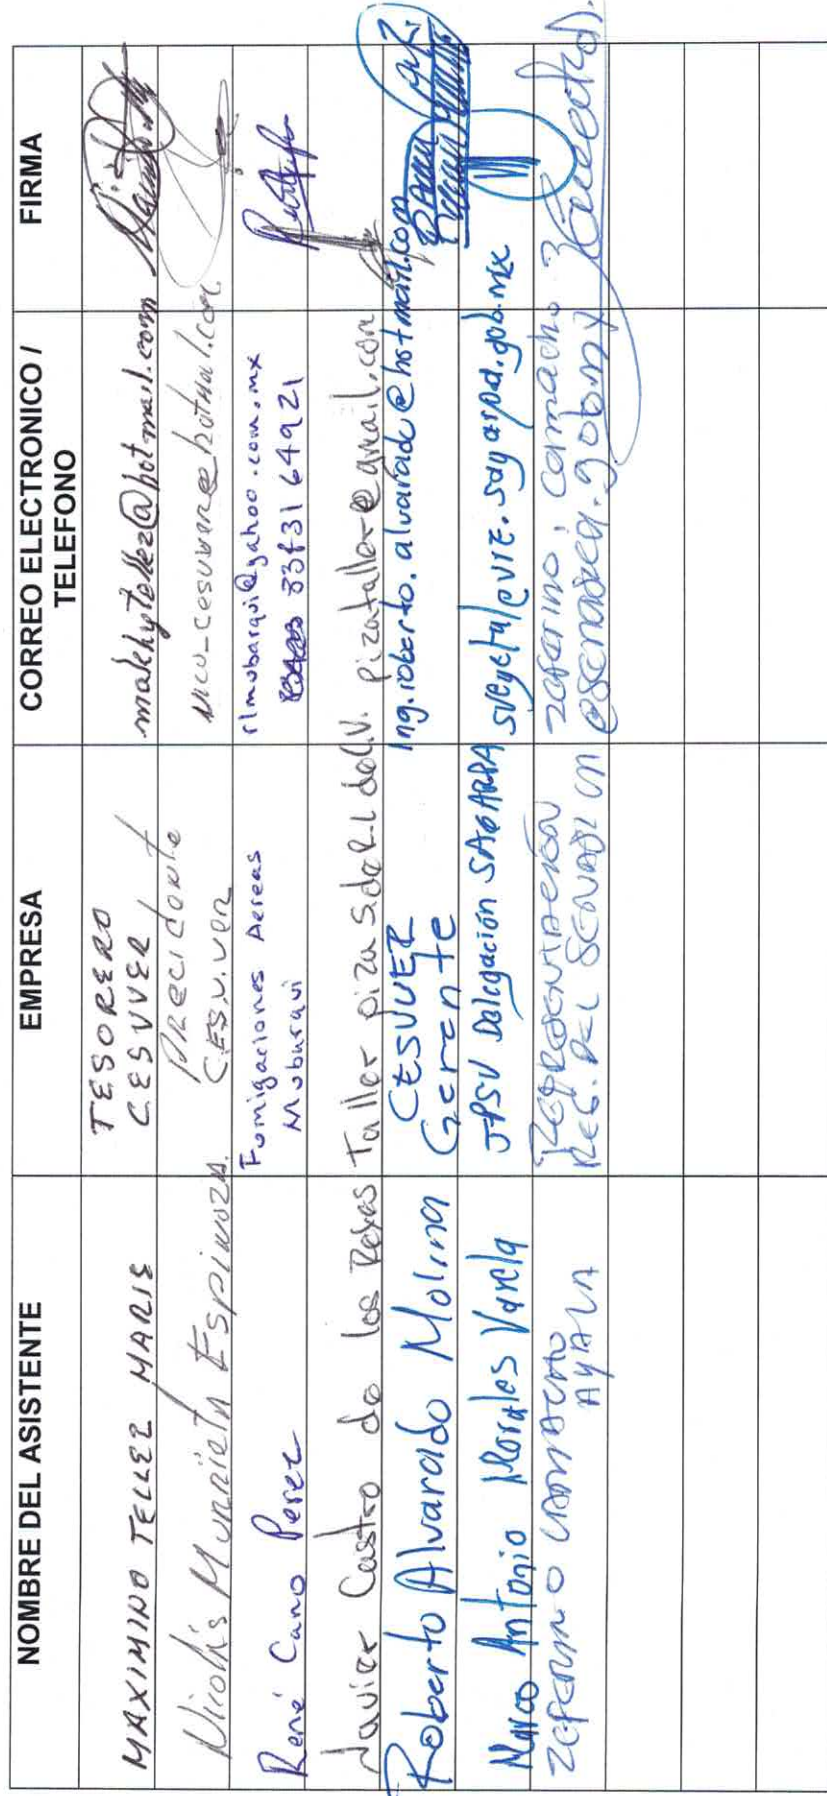 NOMBRE DEL ASISTENTE
EMPRESA
CORREO ELECTRONICO /
TELEFONO
FIRMA
MAXIMINO TELLEZ MARIE
TESORERO
CESVVER
makhytellez@hotmail.com
Nicolás Munrieta Espinoza.
Precidente
C.E.S.V.Ver
nico_cesvver@hotmail.com.
René Cano Perez
Fumigaciones Aereas
Moburqui
rlmobarqui@yahoo.com.mx
3331 64921
Javier Castro de los Reyes
Taller piza S. de R.L de C.V.
pizataller@gmail.com
Roberto Alvarado Molina
CESVVER
Gerente
Ing.roberto.alvarado@hotmail.com
Marco Antonio Morales Varela
JPSV Delegación SAGARPA
svegetal@vie.sagarpa.gob.mx
ZEFERINO CAMACHO
AYALA
REPRESENTACIÓN
REG. DEL SENASICA
zeferino.camacho
@senasica.gob.mx